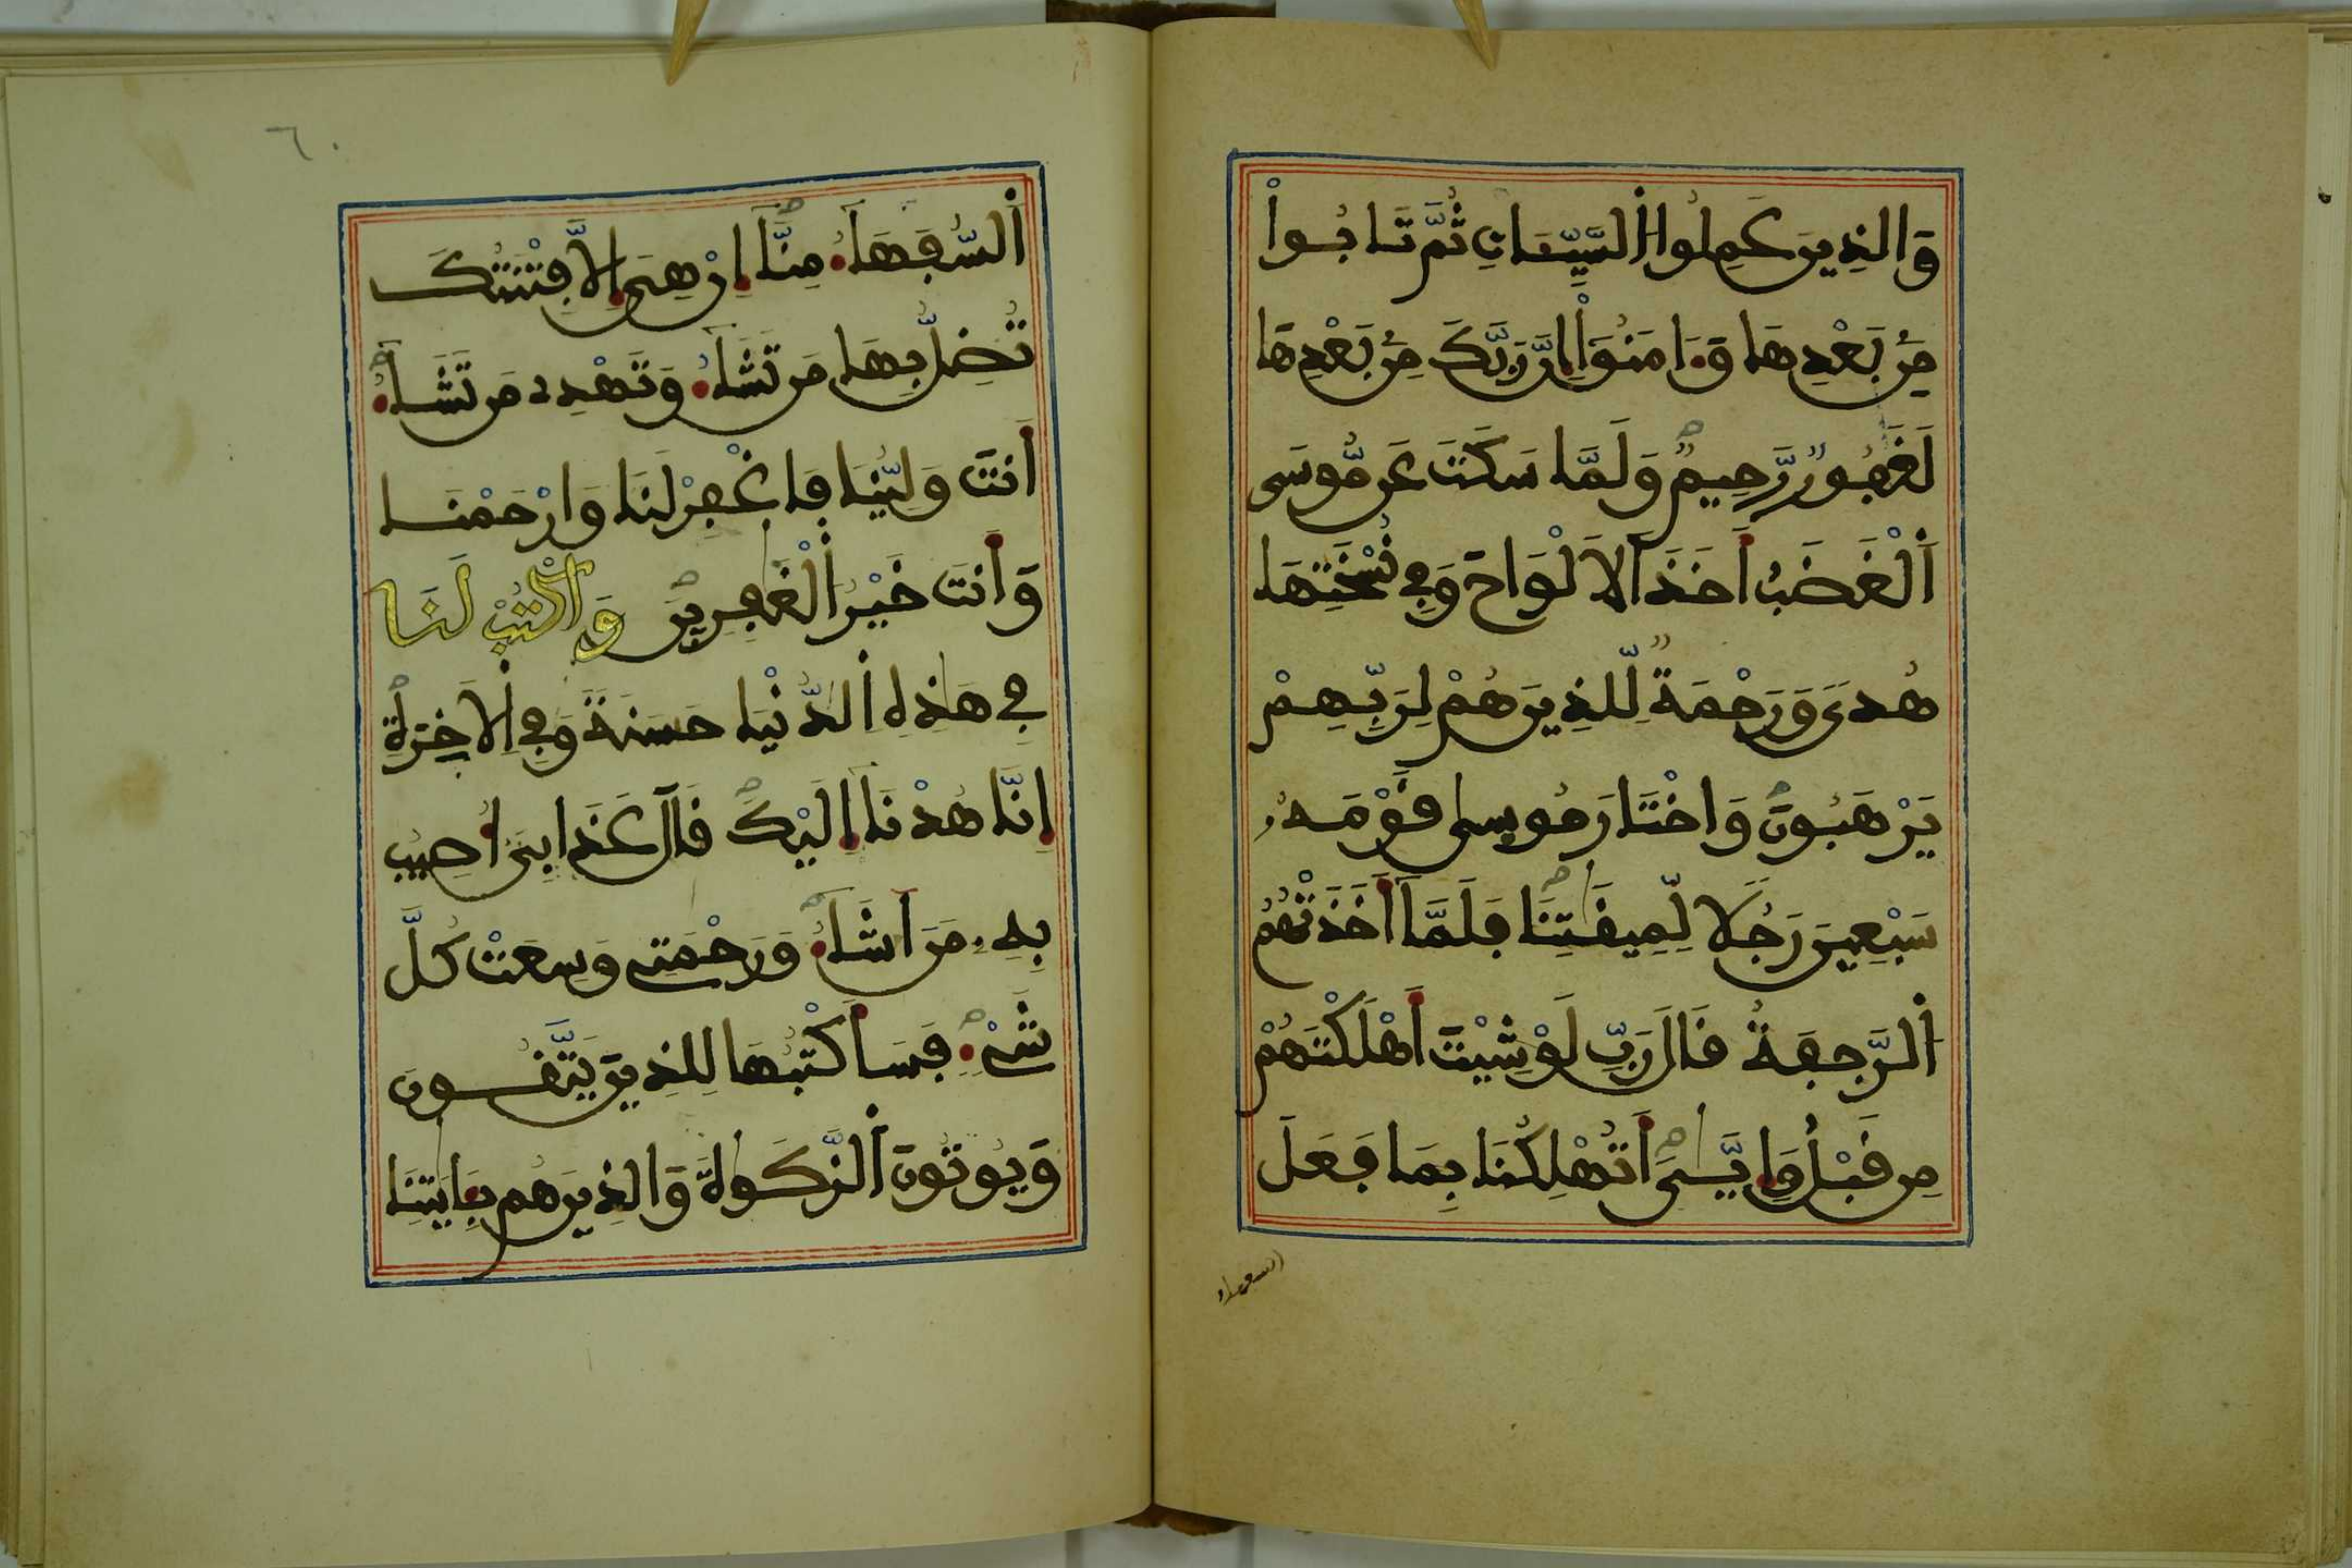 وَالذِينَ عَمِلُوا اُ۬لسَّيِّـَٔاتِ ثُمَّ تَابُواْ
مِنۢ بَعْدِهَا وَءَامَنُوٓاْ إِنَّ رَبَّكَ مِنۢ بَعْدِهَا
لَغَفُورٌ رَّحِيمٌ وَلَمَّا سَكَتَ عَن مُّوسَى
اَ۬لْغَضَبُ أَخَذَ اَ۬لَالْوَاحَ وَفِے نُسْخَتِهَا
هُدىً وَرَحْمَةٌ لِّلذِينَ هُمْ لِرَبِّهِمْ
يَرْهَبُونَ وَاخْتَارَ مُوسىٰ قَوْمَهُۥ
سَبْعِينَ رَجُلًا لِّمِيقَٰتِنَا فَلَمَّآ أَخَذَتْهُمُ
اُ۬لرَّجْفَةُ قَالَ رَبِّ لَوْ شِيْتَ أَهْلَكْتَهُمْ
مِن قَبْلُ وَإِيَّٰىَ أَتُهْلِكُنَا بِمَا فَعَلَ
السفهاء
٦٠
اَ۬لسُّفَهَآءُ مِنَّآ إِنْ هِىَ إِلَّا فِتْنَتُكَ
تُضِلُّ بِهَا مَن تَشَآءُ وَتَهْدِے مَن تَشَآءُ
أَنتَ وَلِيُّنَا فَاغْفِرْ لَنَا وَارْحَمْنَا
وَأَنتَ خَيْرُ اُ۬لْغَٰفِرِينَ وَاكْتُبْ لَنَا
فِے هَٰذِهِ اِ۬لدُّنْيَا حَسَنَةً وَفِے اِ۬لَاخِرَةِ
إِنَّا هُدْنَآ إِلَيْكَ قَالَ عَذَابِىَ أُصِيبُ
بِهِۦ مَنَ اَشَآءُ وَرَحْمَتِے وَسِعَتْ كُلَّ
شَےْءٍ فَسَأَكْتُبُهَا لِلذِينَ يَتَّقُونَ
وَيُوتُونَ اَ۬لزَّكَوٰةَ وَالذِينَ هُم بِـَٔايَٰتِنَا